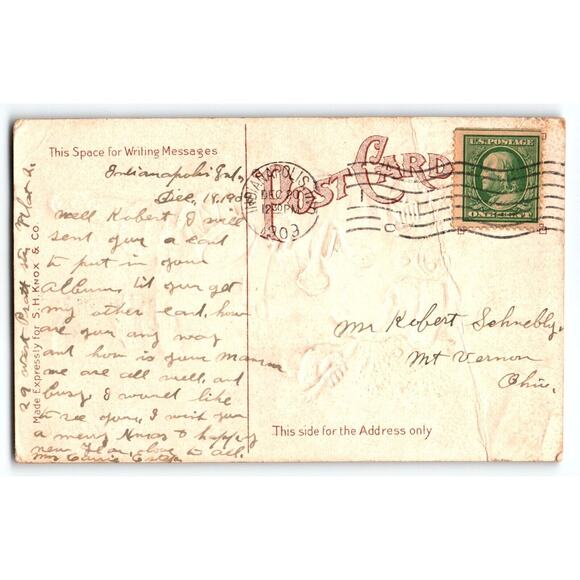 This Space for Writing Messages
Indianapolis Ind,
Dec, 18, 190
well Robert I will
sent you a card
to put in your
Album, til you get
my other card, how
are you any way
and how is your Mamma
we are all well, and
busy. I would like
to see you, I wish you
a merry Xmas & happy
new Year, love to all.
Mrs Carrie
29 West Pratt St,
Made Expressly for S. H. KNOX & CO.
POST CARD
INDIANAPOLIS, IND.
DEC 20
12 30 PM
1909
U.S. POSTAGE
ONE CENT
Mr Robert Schnebly,
Mt Vernon
Ohio,
This side for the Address only